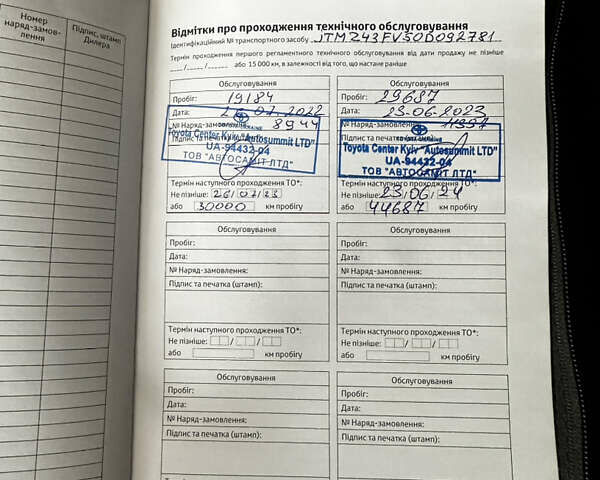 Номер
наряд-замов-
лення
Підпис, штамп
Дилера
Відмітки про проходження технічного обслуговування
Ідентифікаційний № транспортного засобу JTMZ43FV50D092781
Термін проходження першого регламентного технічного обслуговування від дати продажу не пізніше
___/___/_____ або 15 000 км, в залежності від того, що настане раніше
Обслуговування
Пробіг: 19184
Дата: 26.07.2022
№ Наряд-замовлення: 8944
Підпис та печатка
Toyota Center Kyiv "Autosummit LTD"
UA-94432-04
ТОВ "АВТОСАМІТ ЛТД"
Термін наступного проходження ТО*:
Не пізніше: 26/07/23
або 30000 км пробігу
Обслуговування
Пробіг: 29687
Дата: 23.06.2023
№ Наряд-замовлення: 11397
Підпис та печатка
Toyota Center Kyiv "Autosummit LTD"
UA-94432-04
ТОВ "АВТОСАМІТ ЛТД"
Термін наступного проходження ТО*:
Не пізніше: 23/06/24
або 44687 км пробігу
Обслуговування
Пробіг:
Дата:
№ Наряд-замовлення:
Підпис та печатка (штамп):
Термін наступного проходження ТО*:
Не пізніше: / /
або км пробігу
Обслуговування
Пробіг:
Дата:
№ Наряд-замовлення:
Підпис та печатка (штамп):
Термін наступного проходження ТО*:
Не пізніше: / /
або км пробігу
Обслуговування
Пробіг:
Дата:
№ Наряд-замовлення:
Підпис та печатка (штамп):
Обслуговування
Пробіг:
Дата:
№ Наряд-замовлення:
Підпис та печатка (штамп):